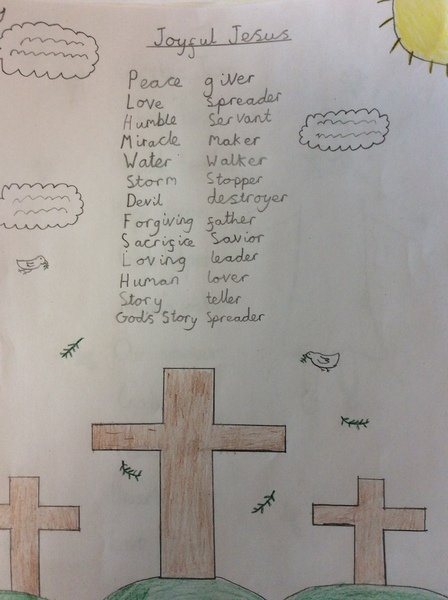 Joyful Jesus
Peace giver
Love Spreader
Humble Servant
Miracle Maker
Water Walker
Storm Stopper
Devil destroyer
Forgiving father
Sacrifice Savior
Loving leader
Human lover
Story teller
God's Story Spreader